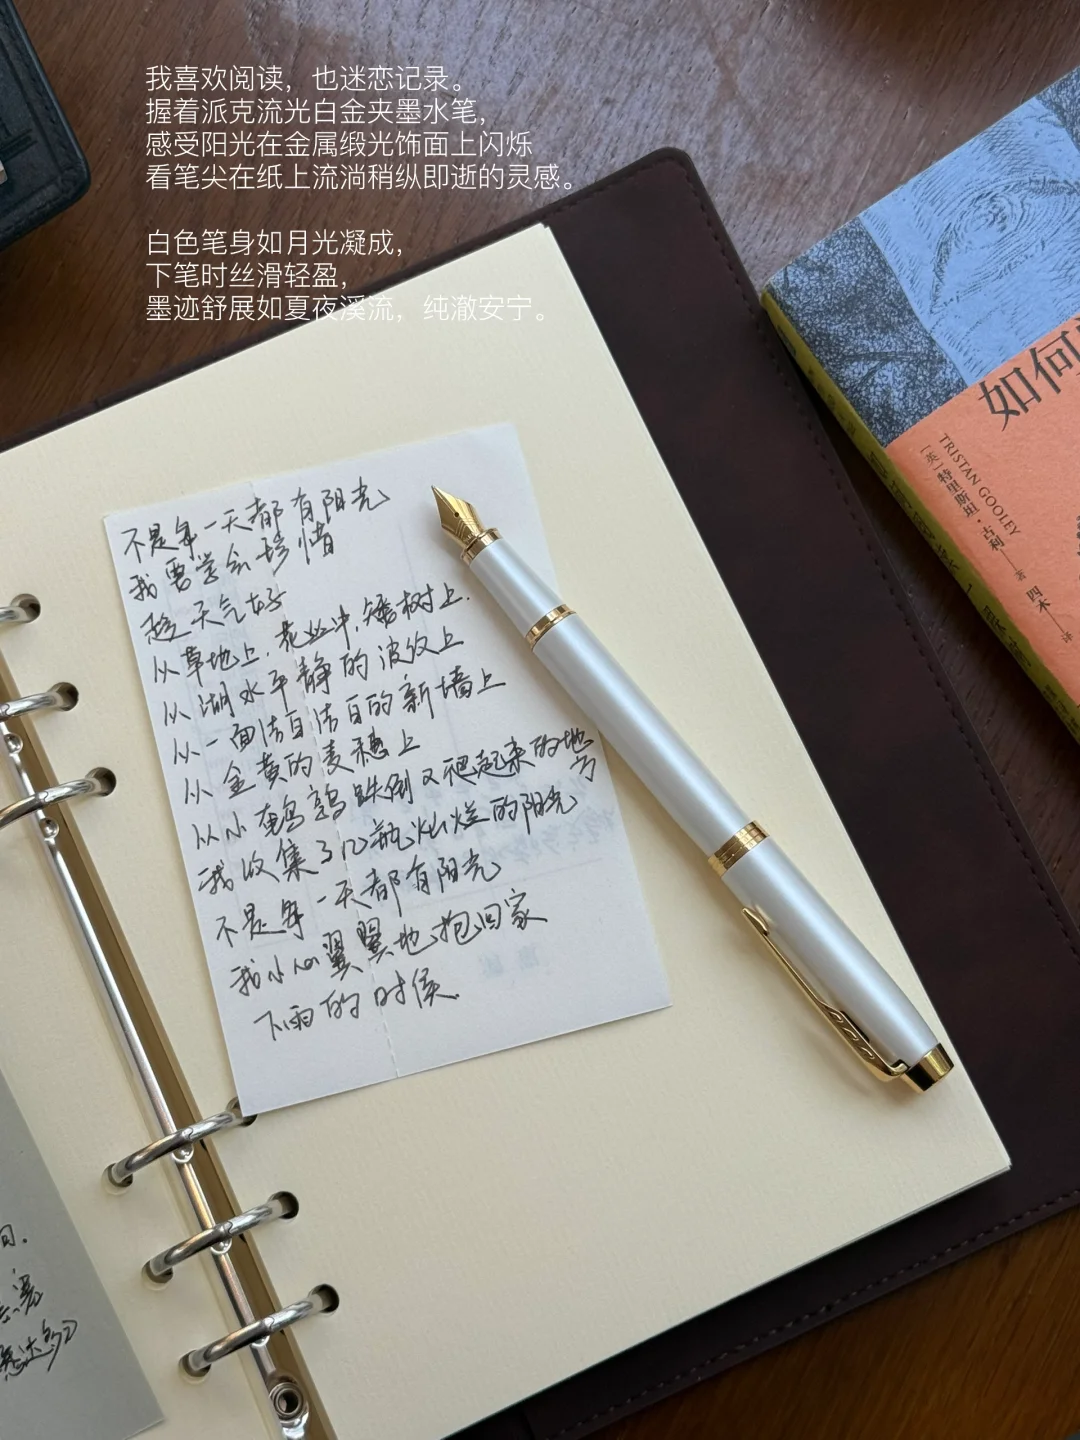 我喜欢阅读，也迷恋记录。
握着派克流光白金夹墨水笔，
感受阳光在金属缎光饰面上闪烁
看笔尖在纸上流淌稍纵即逝的灵感。
白色笔身如月光凝成，
下笔时丝滑轻盈，
墨迹舒展如夏夜溪流，纯澈安宁。
不是每一天都有阳光
我要学会珍惜
趁天气好
从草地上，花丛中，矮树上，
从湖水平静的波纹上
从一面洁白洁白的新墙上
从金黄的麦穗上
从小鹌鹑跌倒又爬起来的地方
我收集了几瓶灿烂的阳光
不是每一天都有阳光
我小心翼翼地抱回家
下雨的时候.
如何
TRISTAN GOOLEY
〔英〕特里斯坦·古利 著
四木 译